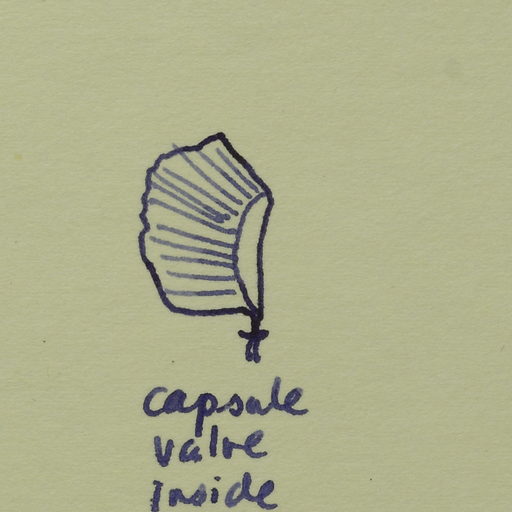 capsule
valve
inside